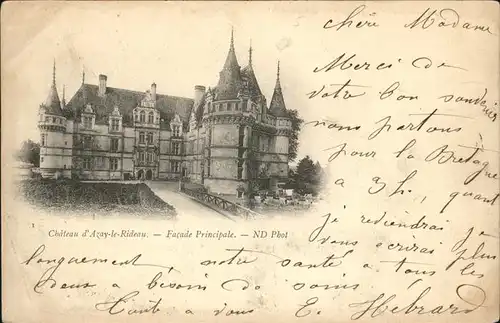 Chère Madame
Merci de
votre bon souvenir
nous partons
pour la Bretagne
à 3h, quant
je reviendrai je
vous écrirai plus
Château d'Azay-le-Rideau. — Façade Principale. — ND Phot
longuement, notre santé à tous les
deux a besoin de soins
Toute à vous E. Hébrard